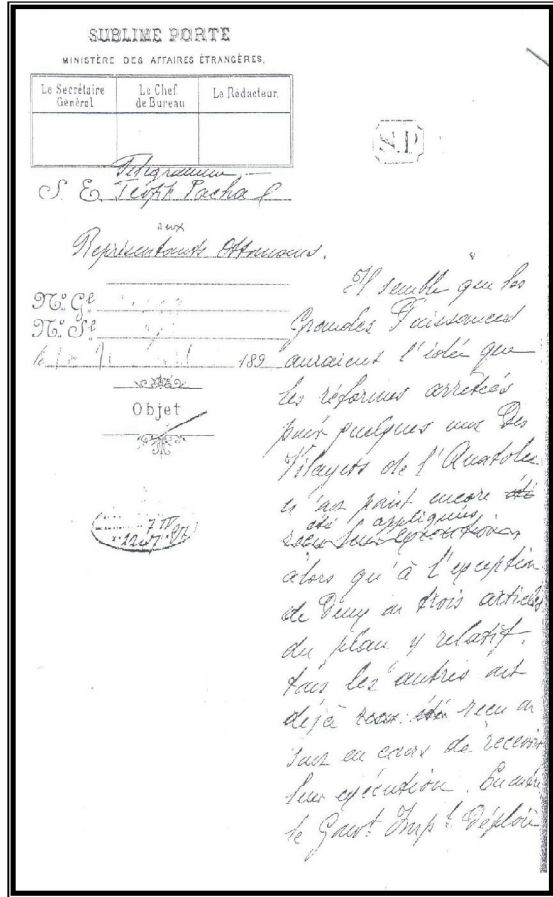 SUBLIME PORTE
MINISTÈRE DES AFFAIRES ÉTRANGÈRES.
Le Secrétaire Général
Le Chef de Bureau
Le Rédacteur.
S.P
Télégramme
S. E. Tevfik Pacha
aux
Représentants Ottomans.
N.º G.l
N.º S.l
le 189
Objet
7 IV
Il semble que les
Grandes Puissances
auraient l'idée que
les réformes arrêtées
pour quelques uns des
Vilayets de l'Anatolie
n'ont point encore été
été appliquées,
reçu leur exécution
alors qu'à l'exception
de deux ou trois articles
du plan y relatif,
tous les autres ont
déjà été reçu ou
sont en cours de recevoir
leur exécution. En outre
le Gouv.t Imp.l déploie